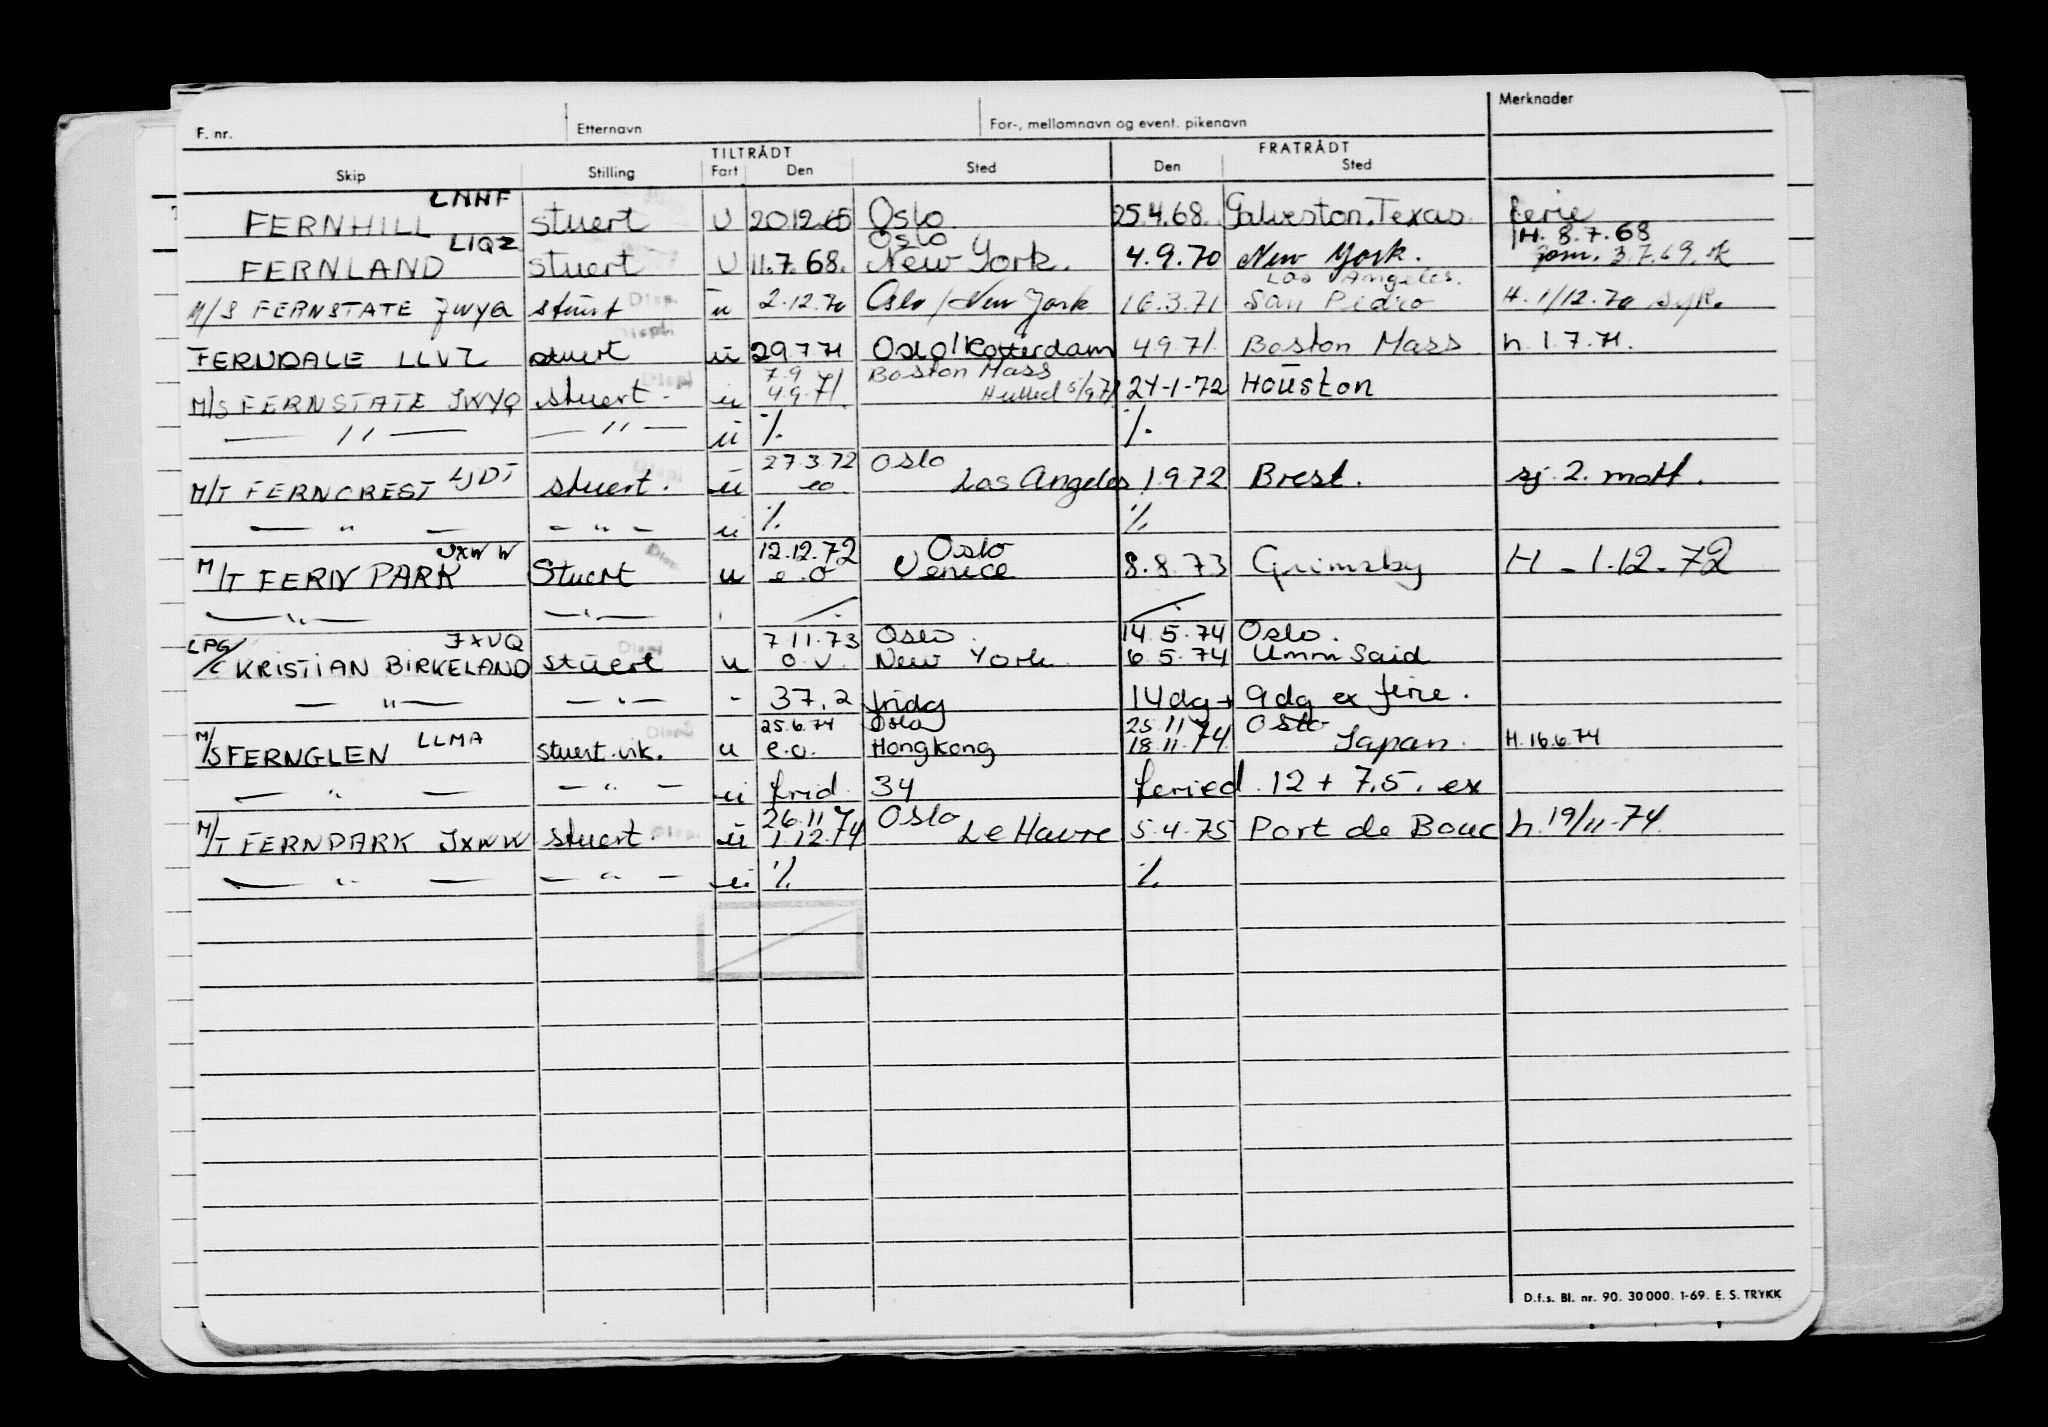 F. nr. Etternavn For-, mellomnavn og event. pikenavn Merknader
TILTRÅDT FRATRÅDT
Skip Stilling Fart Den Sted Den Sted
LNHF
FERNHILL stuert U 20.12.65 Oslo 25.4.68. Galveston. Texas ferie
LIQZ Oslo H. 8.7.68
FERNLAND stuert U 11.7.68. New York. 4.9.70 New York. 3.7.69.
Los Angeles.
M/S FERNSTATE JWYQ stuert Displ. u 2.12.70 Oslo/New York 16.3.71 San Pedro H. 1/12.70 syk.
FERNDALE LLVZ stuert Displ. u 29771 Oslo/Rotterdam 4971. Boston Mass h. 1.7.71.
7.9 Boston Mass
M/S FERNSTATE JWYQ stuert. Displ u 4.9.71. 5/971 24-1-72 Houston
— // — — // — u % %.
27.3.72 Oslo
M/T FERNCREST LJDT stuert. Displ u eo Los Angeles 1.9.72 Brest. sj. 2. mott.
— " — — " — u % %
JXWW 12.12.72 Oslo
M/T FERN PARK Stuert u e.o Venice 8.8.73 Grimsby H - 1.12.72
— " — — " —
LPG/ JXVQ 7.11.73 Oslo. 14.5.74 Oslo.
C KRISTIAN BIRKELAND stuert Displ u o.v. New York 6.5.74 Umm Said
— " — — " — - 37.2 fridg 14dg + 9dg ex ferie.
25.6.74 Oslo 25.11 Oslo
M/S FERNGLEN LLMA stuert.vik. Displ u e.o. Hongkong 18.11.74. Japan. H. 16.6.74
— " — — " — u frid 34 feried. 12 + 7,5. ex
26.11 Oslo
M/T FERNPARK JXWW stuert. Displ. u 1.12.74 Le Havre 5.4.75 Port de Bouc h. 19/11-74.
— " — — " — u % %
D.f.s. Bl. nr. 90. 30 000. 1-69. E. S. TRYKK